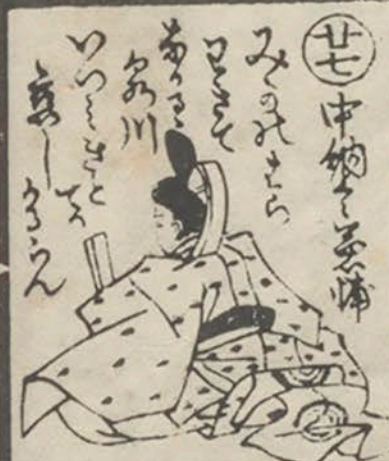 廿七
中納言兼輔
みかのはら
わきて
なかるゝ
泉川
いつみきと
てか
恋し
かるらん